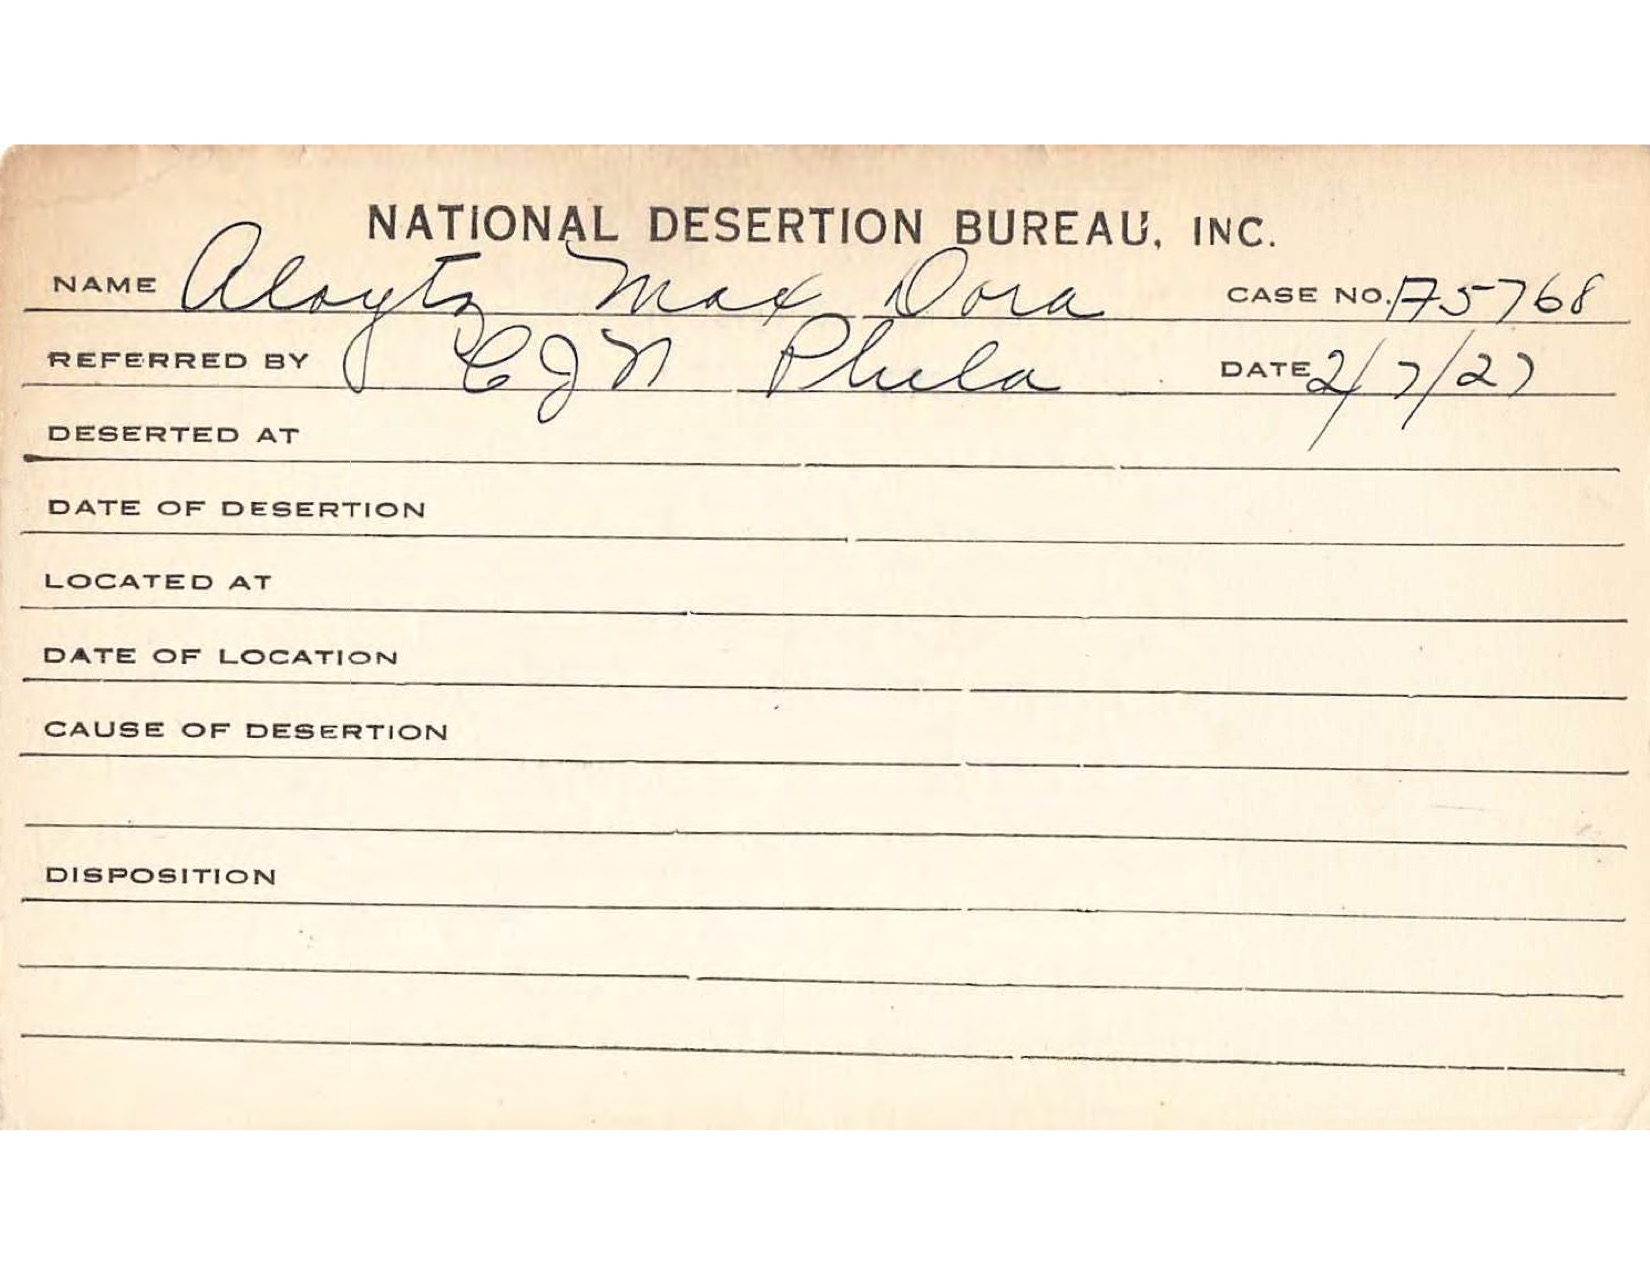 NATIONAL DESERTION BUREAU, INC.
NAME Aloytz Max Dora CASE NO. A5768
REFERRED BY CJN Phila DATE 2/7/27
DESERTED AT
DATE OF DESERTION
LOCATED AT
DATE OF LOCATION
CAUSE OF DESERTION
DISPOSITION